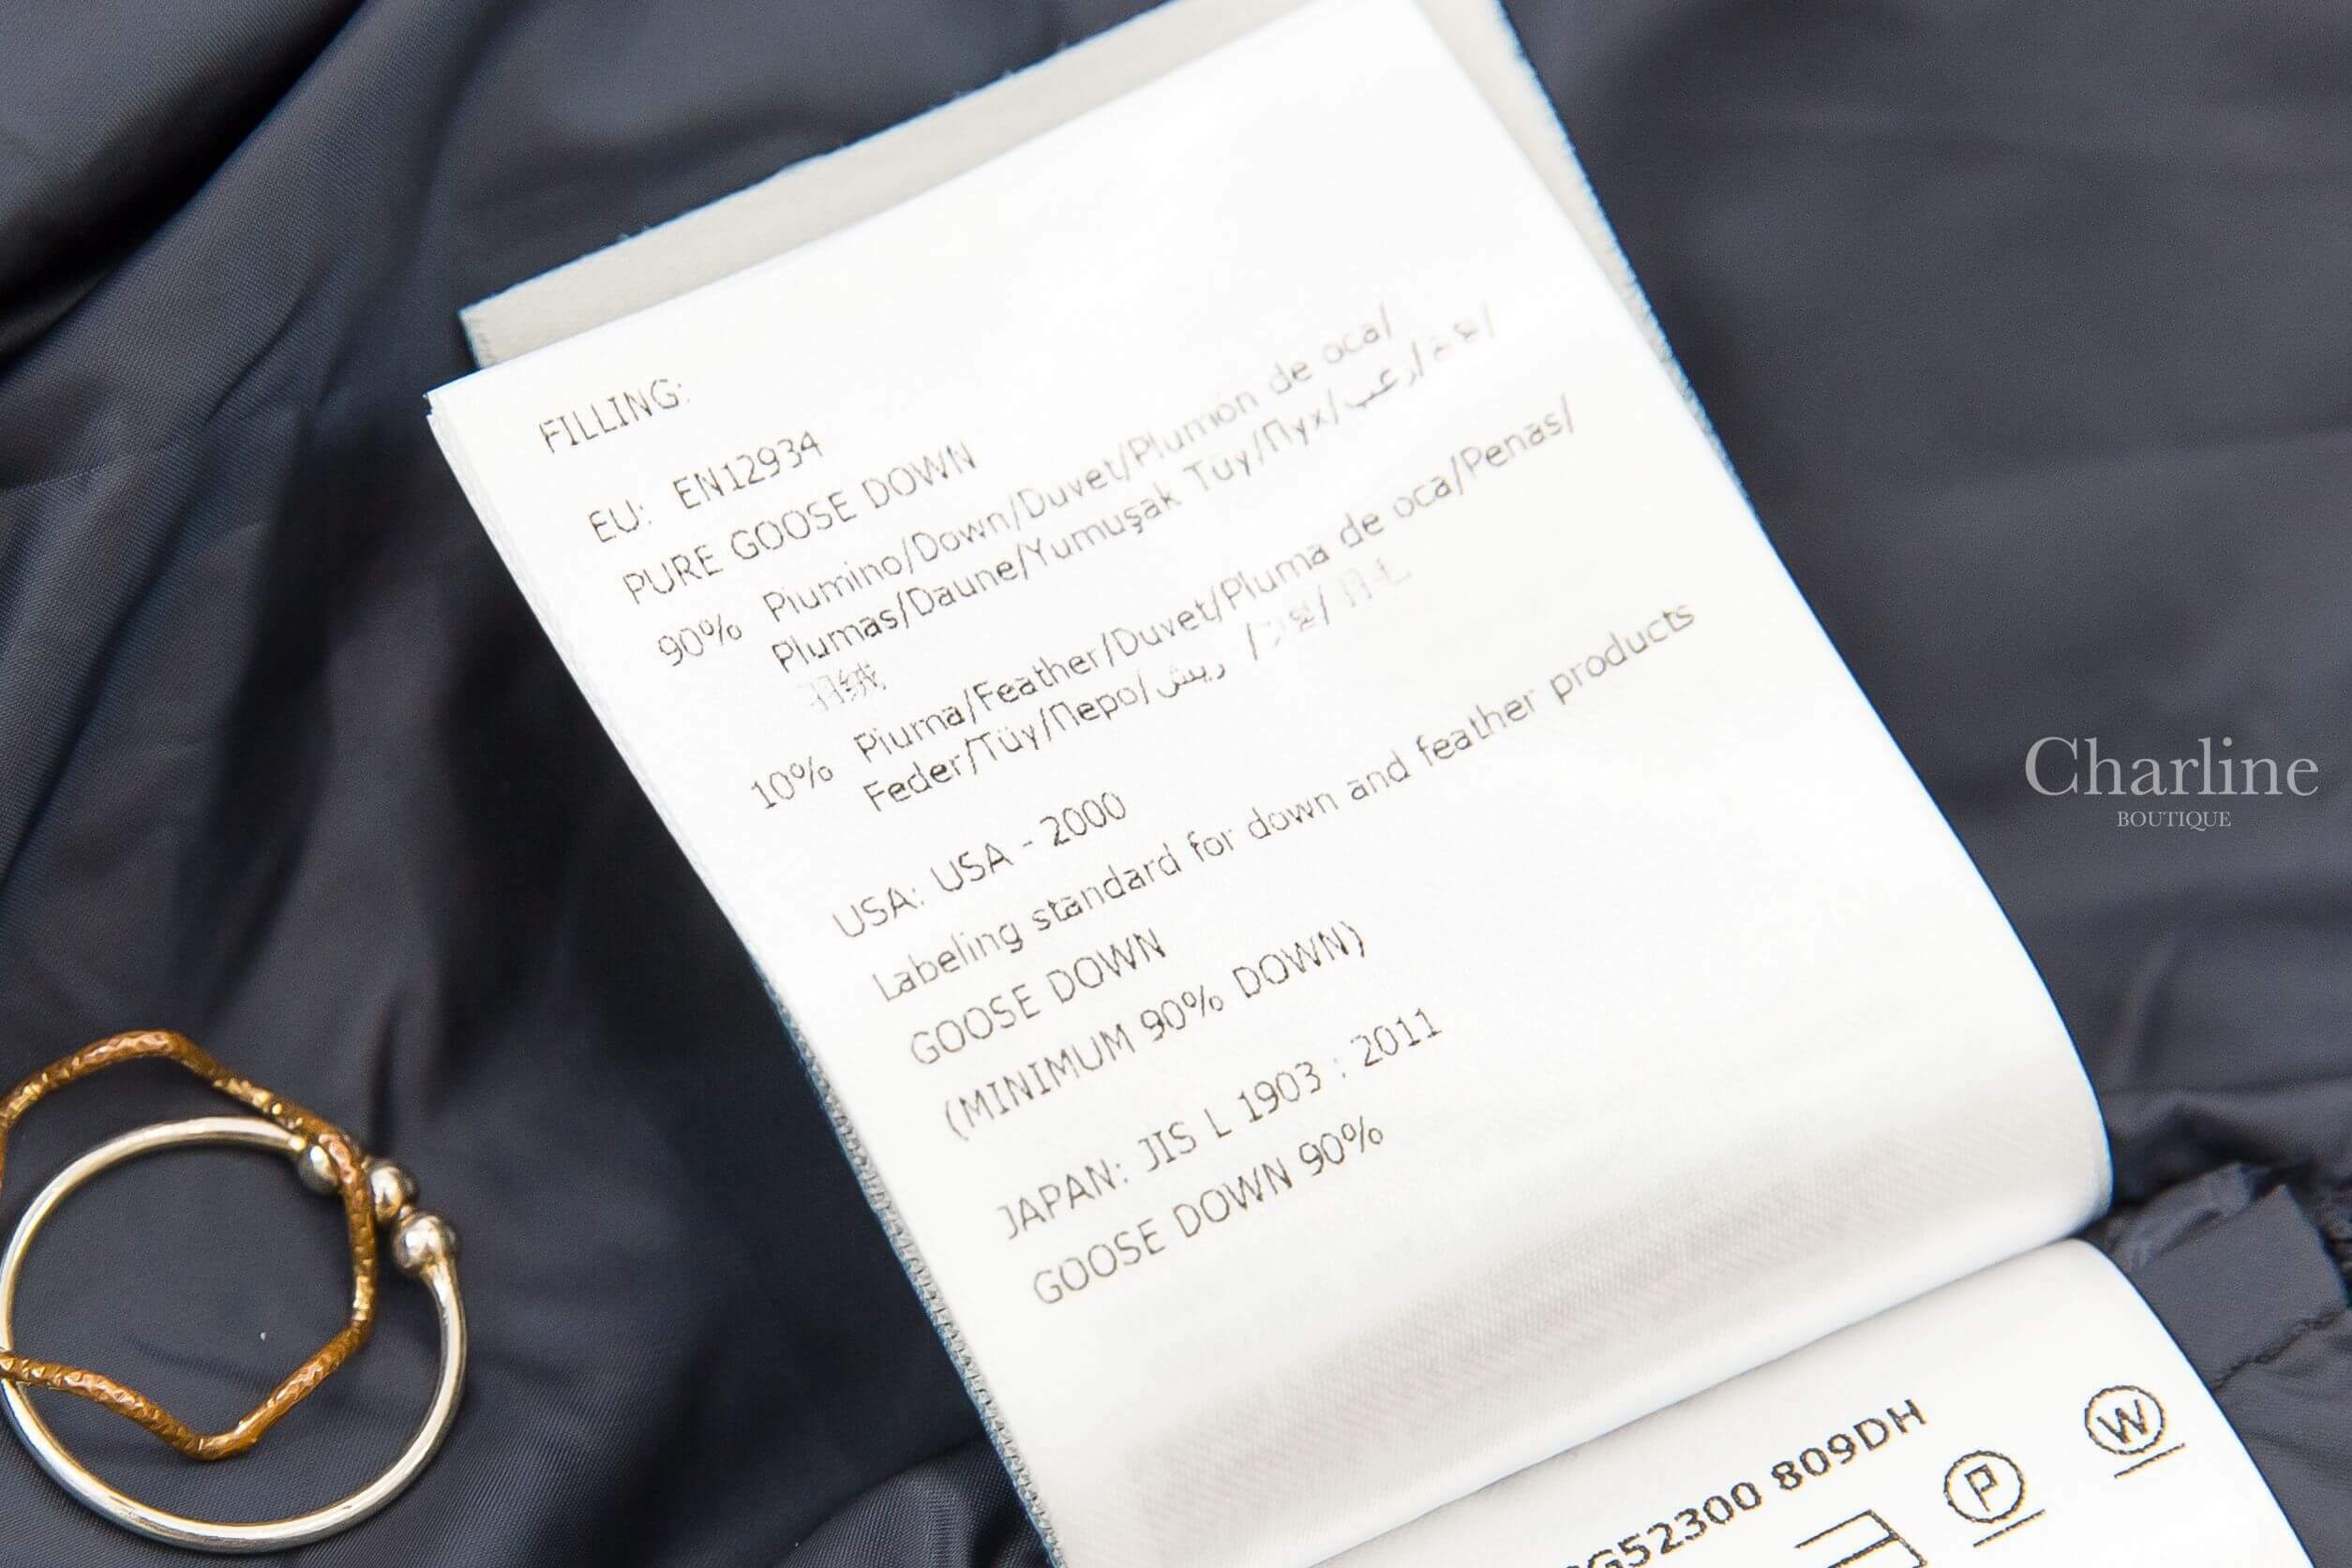 FILLING:
EU: EN12934
PURE GOOSE DOWN
90% Piumino/Down/Duvet/Plumón de oca/
Plumas/Daune/Yumuşak Tüy/Пух/زغب/
羽绒
10% Piuma/Feather/Duvet/Pluma de oca/Penas/
Feder/Tüy/Перо/ريش/
USA: USA - 2000
Labeling standard for down and feather products
GOOSE DOWN
(MINIMUM 90% DOWN)
JAPAN: JIS L 1903 : 2011
GOOSE DOWN 90%
G52300 809DH
P
W
Charline
BOUTIQUE